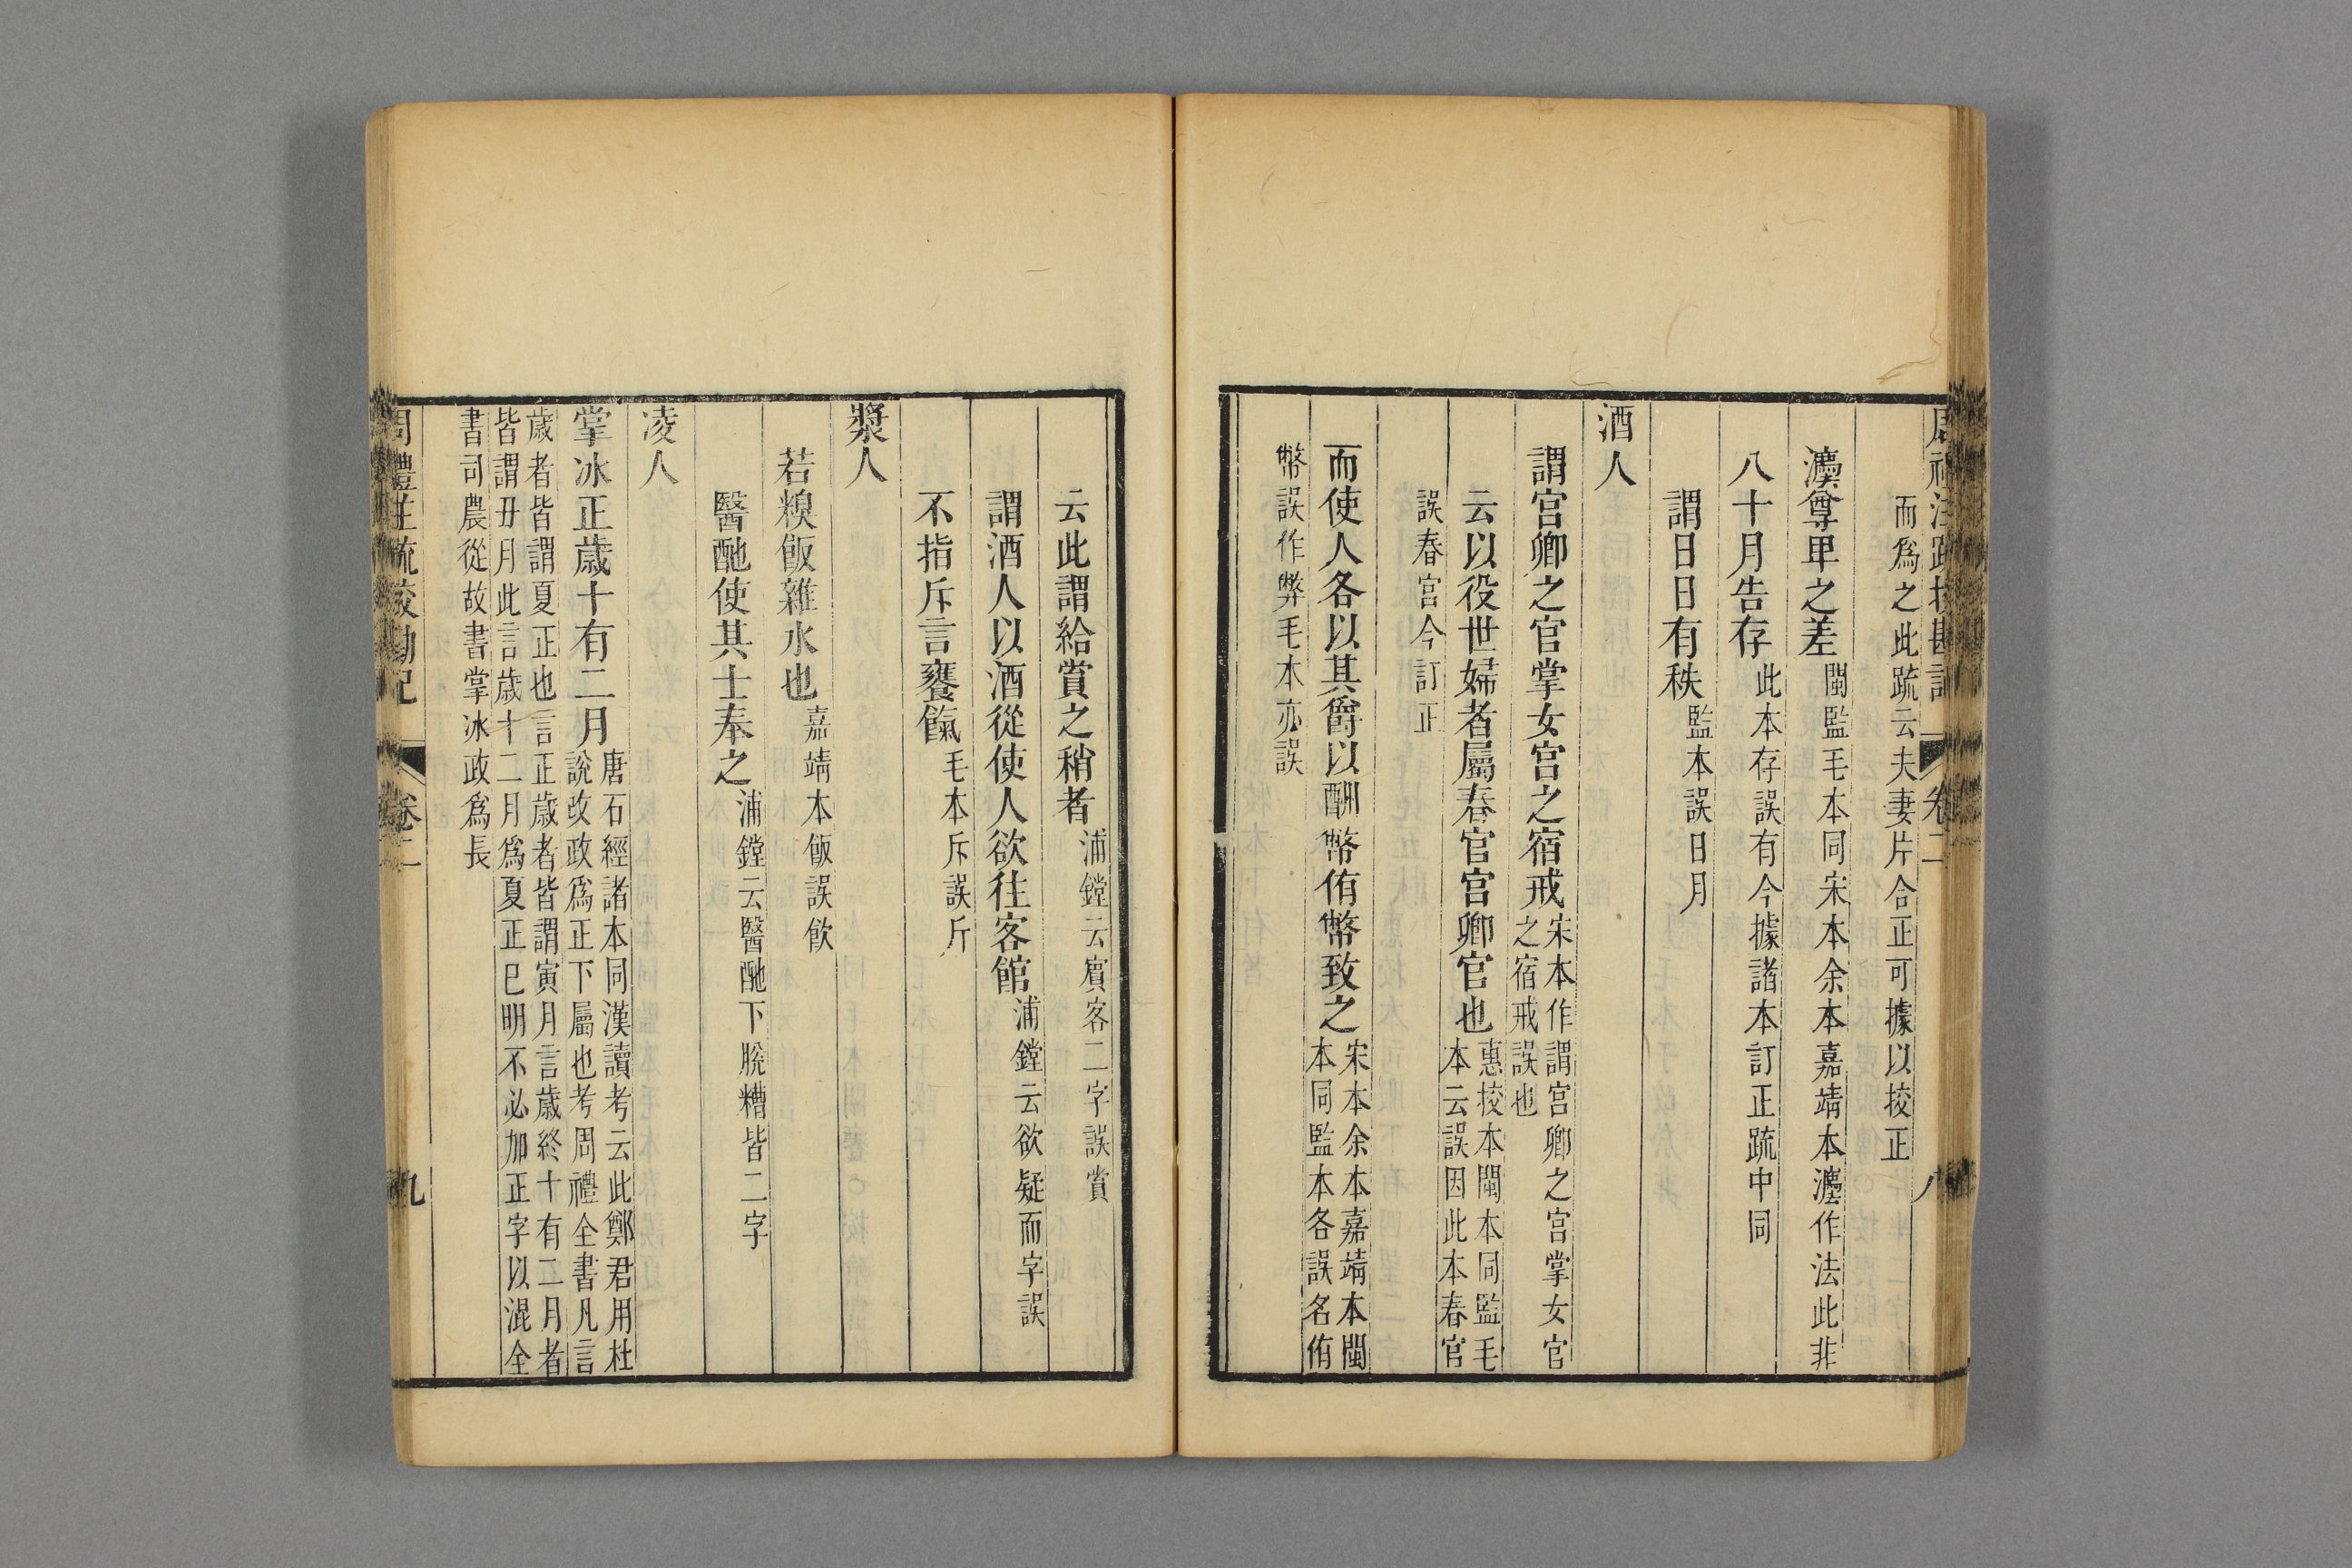 周禮注疏挍勘記 卷二 八
而爲之此疏云夫妻片合正可據以挍正
灋尊卑之差閩監毛本同宋本余本嘉靖本灋作法此非
八十月告存此本存誤有今據諸本訂正疏中同
謂日日有秩監本誤日月
酒人
謂宮卿之官掌女宮之宿戒宋本作謂宮卿之官掌女官
之宿戒誤也
云以役世婦者屬春官宮卿官也惠挍本閩本同監毛
本云誤因此本春官
誤春宮今訂正
而使人各以其爵以酬幣侑幣致之宋本余本嘉靖本閩
本同監本各誤名侑
幣誤作弊毛本亦誤
云此謂給賞之稍者浦鏜云賓客二字誤賞
謂酒人以酒從使人欲往客館浦鏜云欲疑而字誤
不指斥言饔餼毛本斥誤斤
漿人
若糗飯雜水也嘉靖本飯誤飲
醫酏使其士奉之浦鏜云醫酏下脫糟皆二字
凌人
掌冰正歲十有二月唐石經諸本同漢讀考云此鄭君用杜
說改政爲正下屬也考周禮全書凡言
歲者皆謂夏正也言正歲者皆謂寅月言歲終十有二月者
皆謂丑月此言歲十二月爲夏正巳明不必加正字以混全
書司農從故書掌冰政爲長
周禮注疏挍勘記 卷二 九